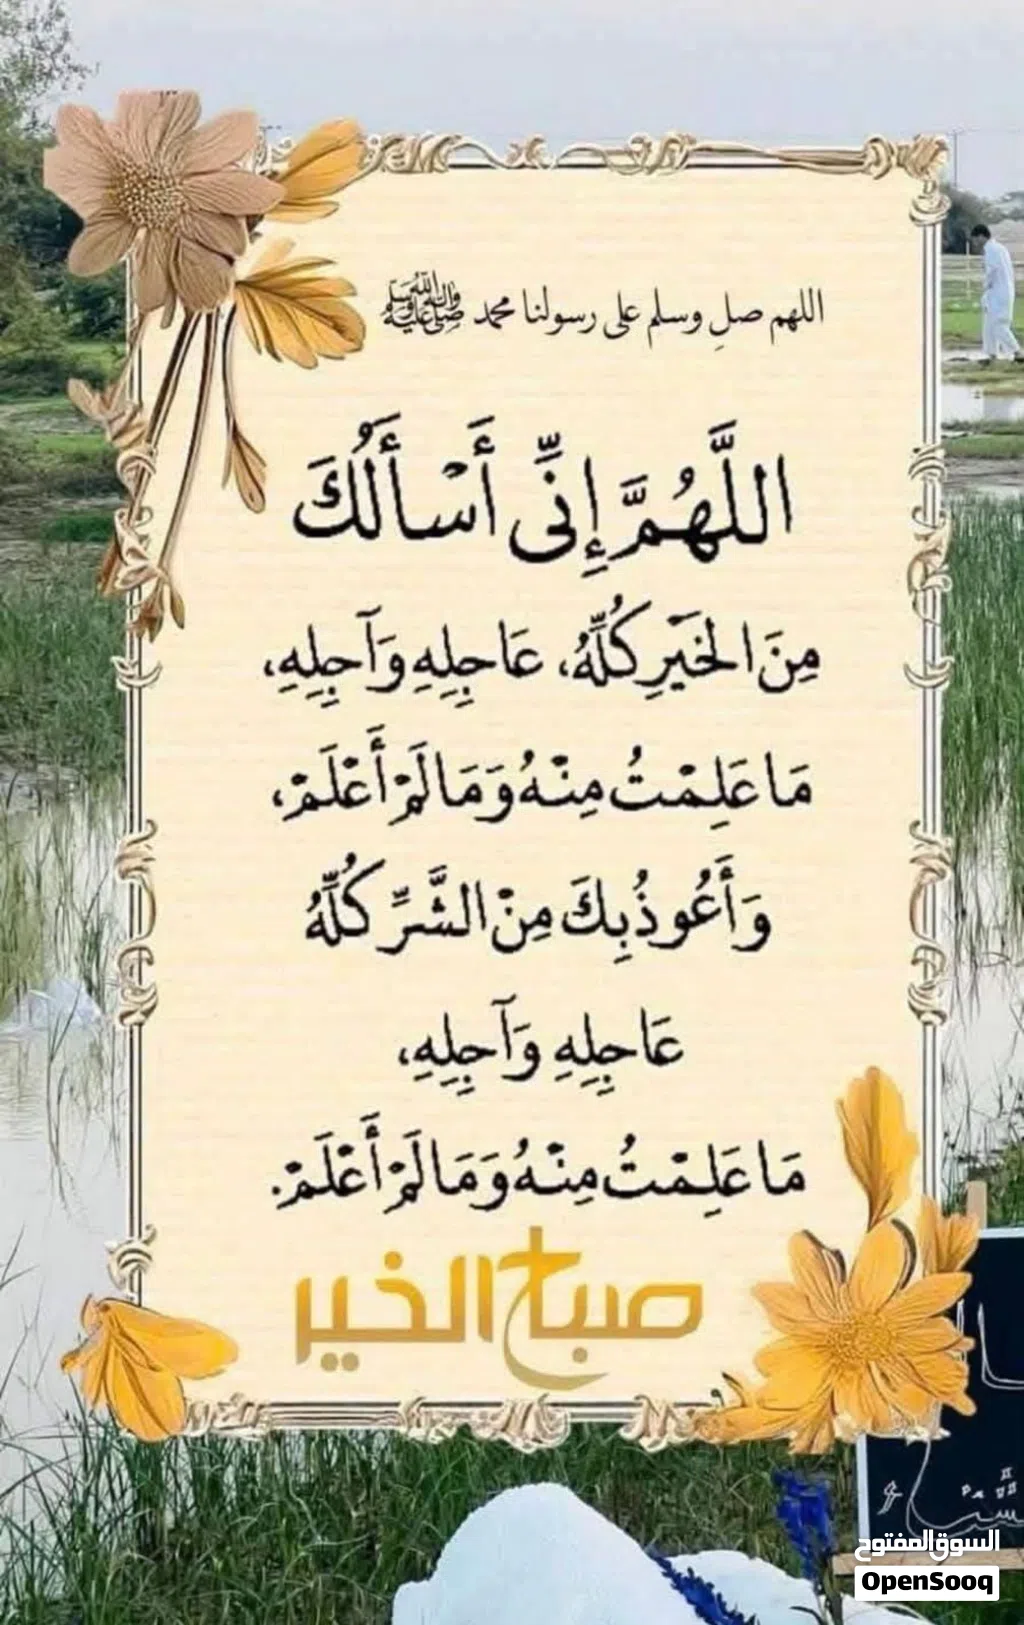 اللهم صلِ وسلم على رسولنا محمد ﷺ
اللَّهُمَّ إِنِّي أَسْأَلُكَ
مِنَ الخَيْرِ كُلِّهُ، عَاجِلِهِ وَآجِلِهِ،
مَا عَلِمْتُ مِنْهُ وَمَا لَمْ أَعْلَمْ،
وَأَعُوذُ بِكَ مِنْ الشَّرِّ كُلِّهُ
عَاجِلِهِ وَآجِلِهِ،
مَا عَلِمْتُ مِنْهُ وَمَا لَمْ أَعْلَمْ.
صباح الخير
السوق المفتوح
OpenSooq